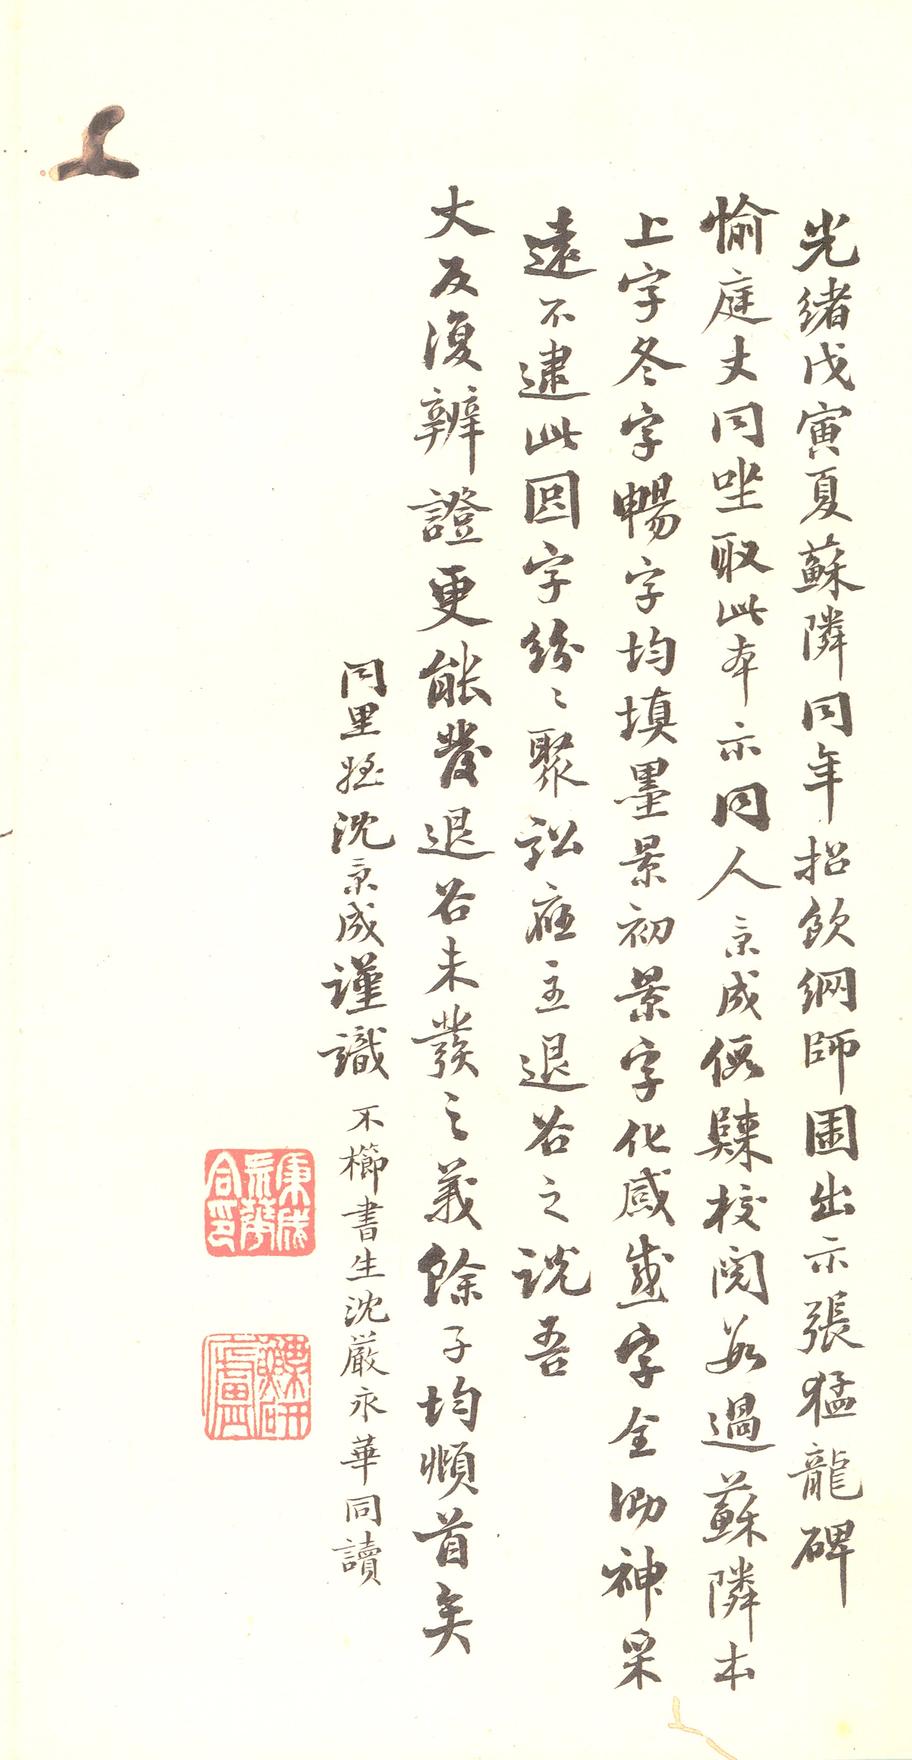 光緒戊寅夏蘇隣同年招飲網師園出示張猛龍碑
愉庭丈同坐取此本示同人秉成倐隸校閱如過蘇隣本
上字冬字暢字均填墨景初景字化感感字全泐神采
遠不逮此因字紛〻聚訟雖主退谷之說吾
丈反復辨證更能發退谷未發之義餘子均頫首矣
同里姪沈秉成謹識
不櫛書生沈嚴永華同讀
鰈研廬